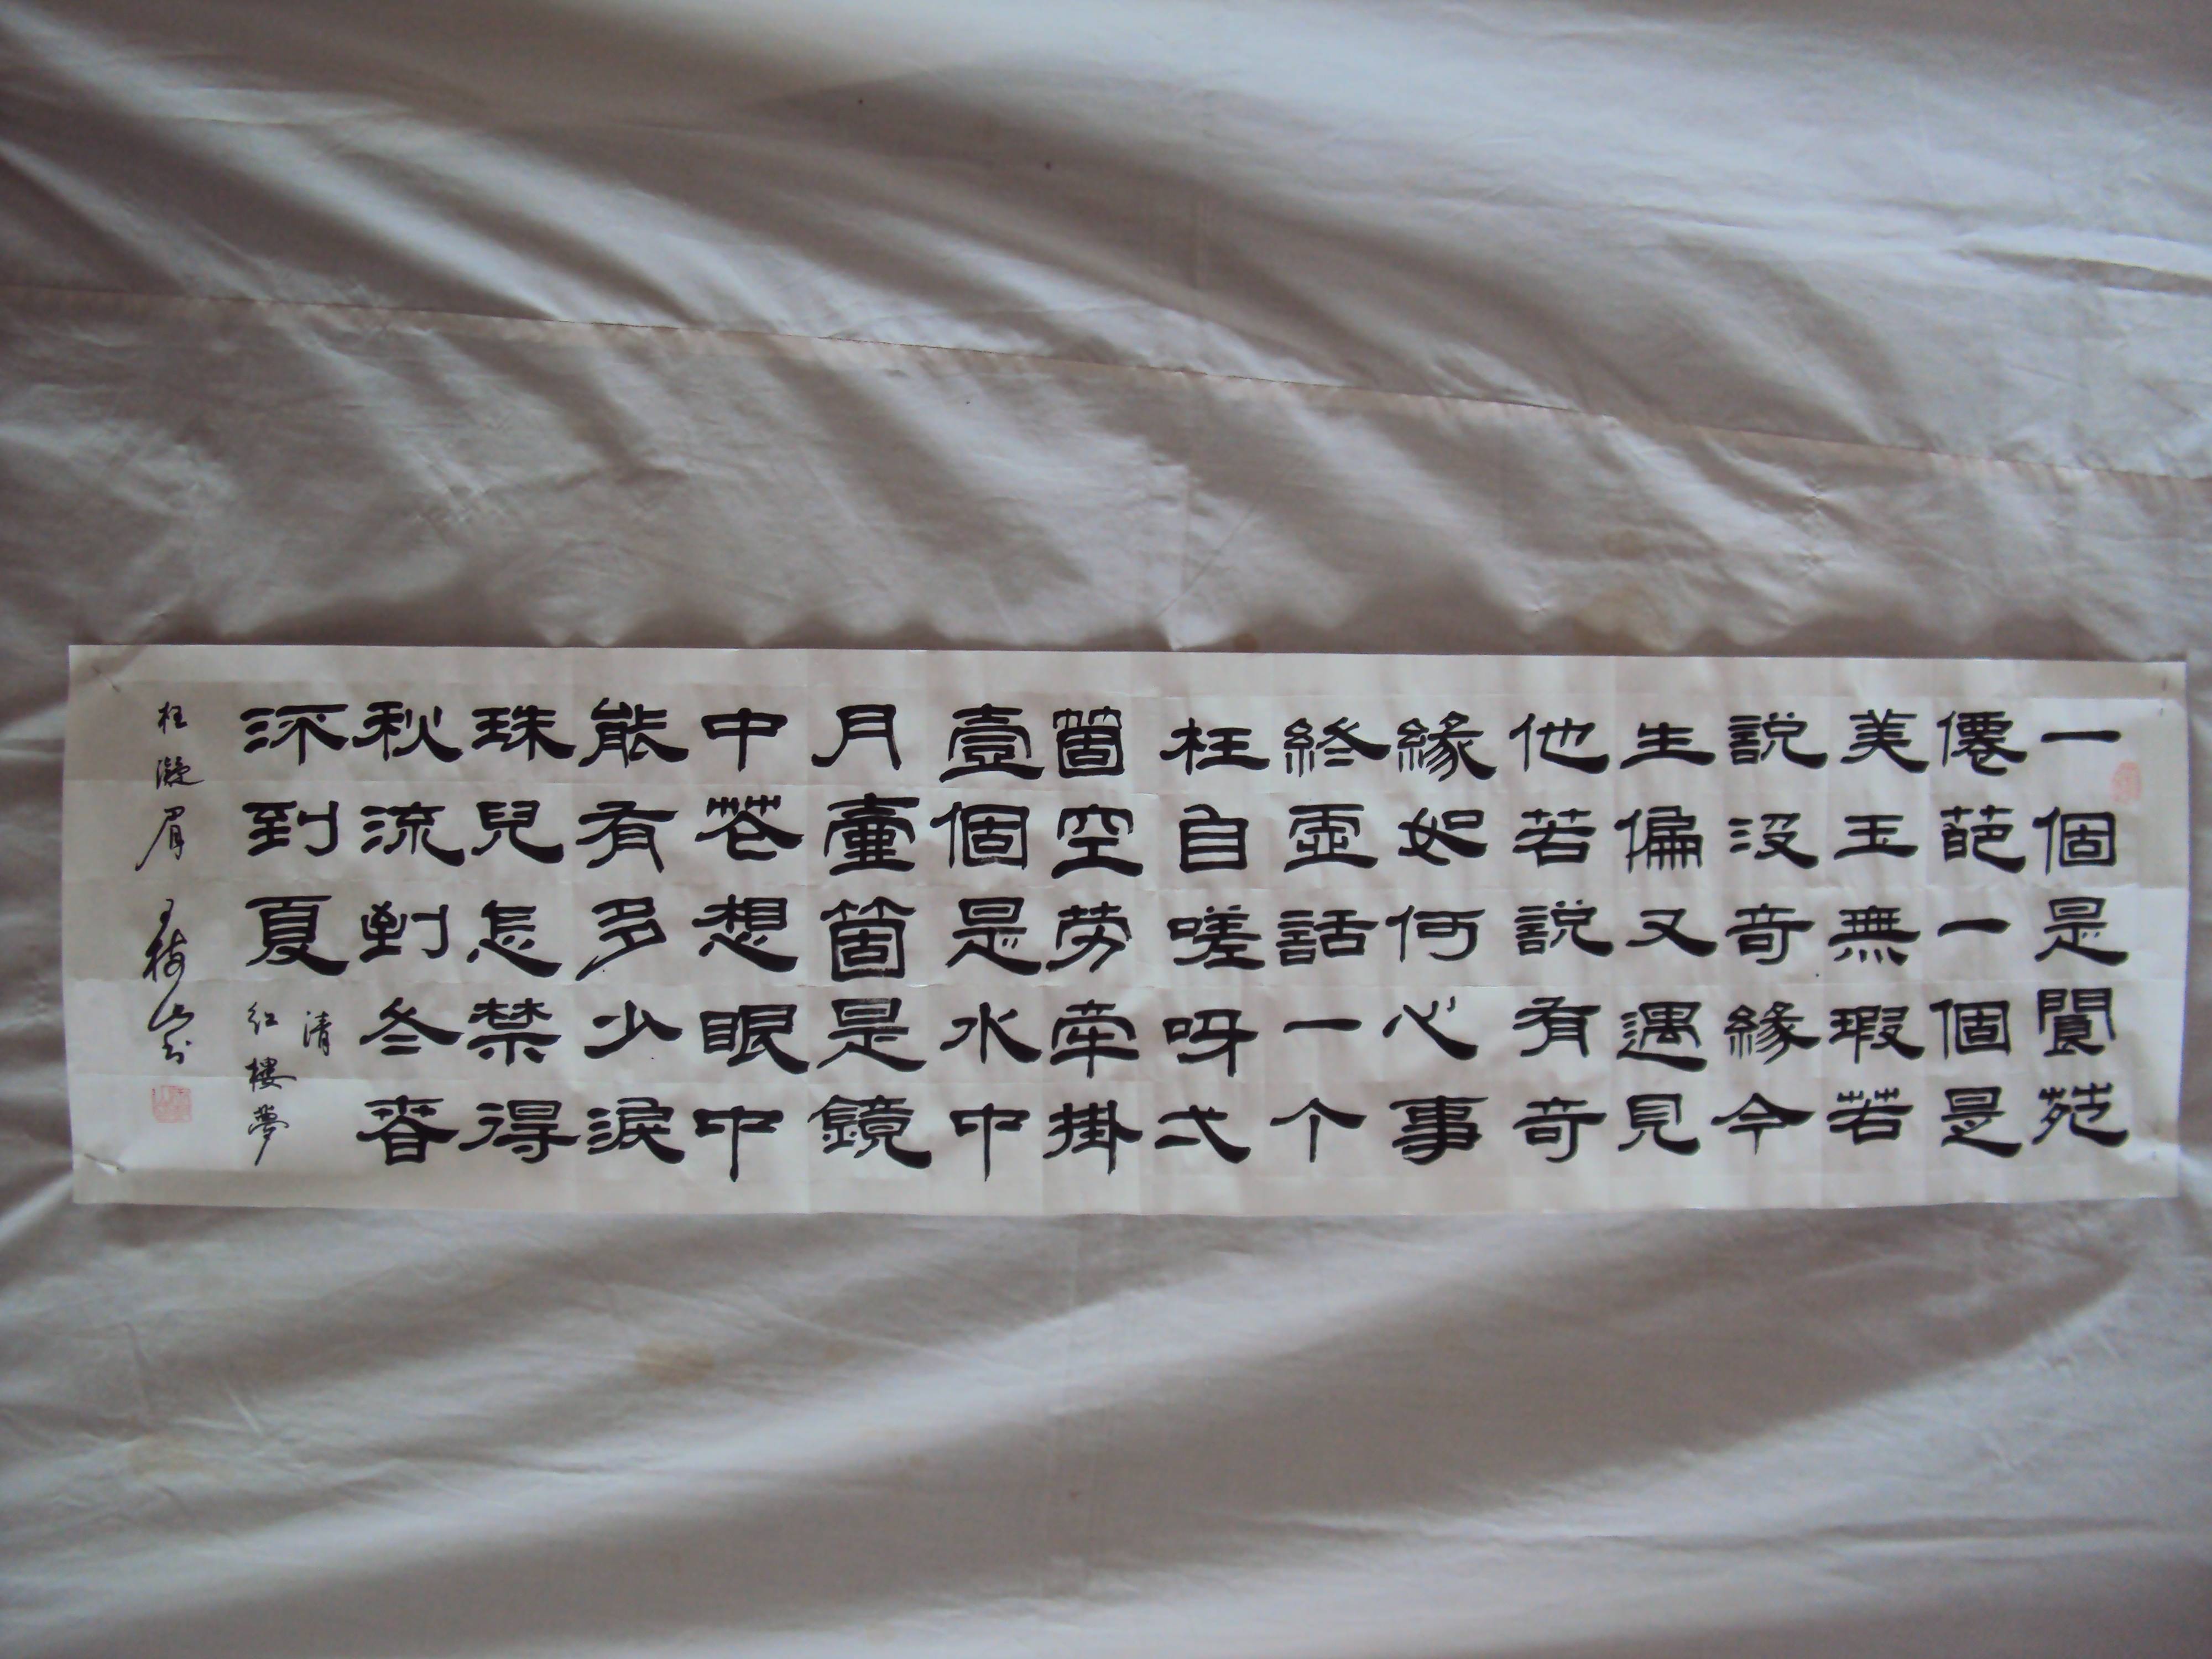 一個是閬苑
僊葩一個是
美玉無瑕若
説没奇緣今
生偏又遇見
他若説有奇
緣如何心事
終虛話一个
枉自嗟呀弌
箇空劳牽掛
壹個是水中
月壹箇是鏡
中花想眼中
能有多少淚
珠兒怎禁得
秋流到冬春
流到夏
清
红樓夢
枉凝眉